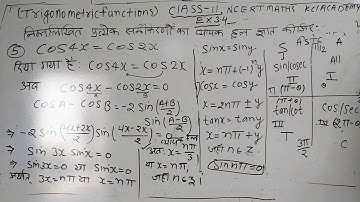 (Trigonometric functions) CLASS-11, NCERT MATHS KCIACADEMY
EX 3.4
निम्नलिखित प्रत्येक समीकरणों का व्यापक हल ज्ञात कीजिए:-
⑤ COS4X = COS2X
दिया गया है: COS4X = COS2X
अब COS4X - COS2X = 0
COSA - COSB = -2 Sin(A+B/2)
Sin(A-B/2)
⇒ -2 Sin(4X+2X/2) Sin(4X-2X/2) = 0
⇒ Sin 3X Sinx = 0
⇒ Sin3X = 0 या Sinx = 0
अर्थात 3X = nπ या X = nπ
अतः X = nπ/3
या X = nπ,
जहाँ n∈Z.
Sinx = Siny
X = nπ + (-1)ⁿ y
COSX = COSY
X = 2nπ ± y
tanx = tany
X = nπ + y
जहाँ n∈Z.
Sin nπ = 0
S π/2 A
sin/cosec All
II (π-θ) I
(π+θ) tan/cot COS/sec
III
T 3π/2 C